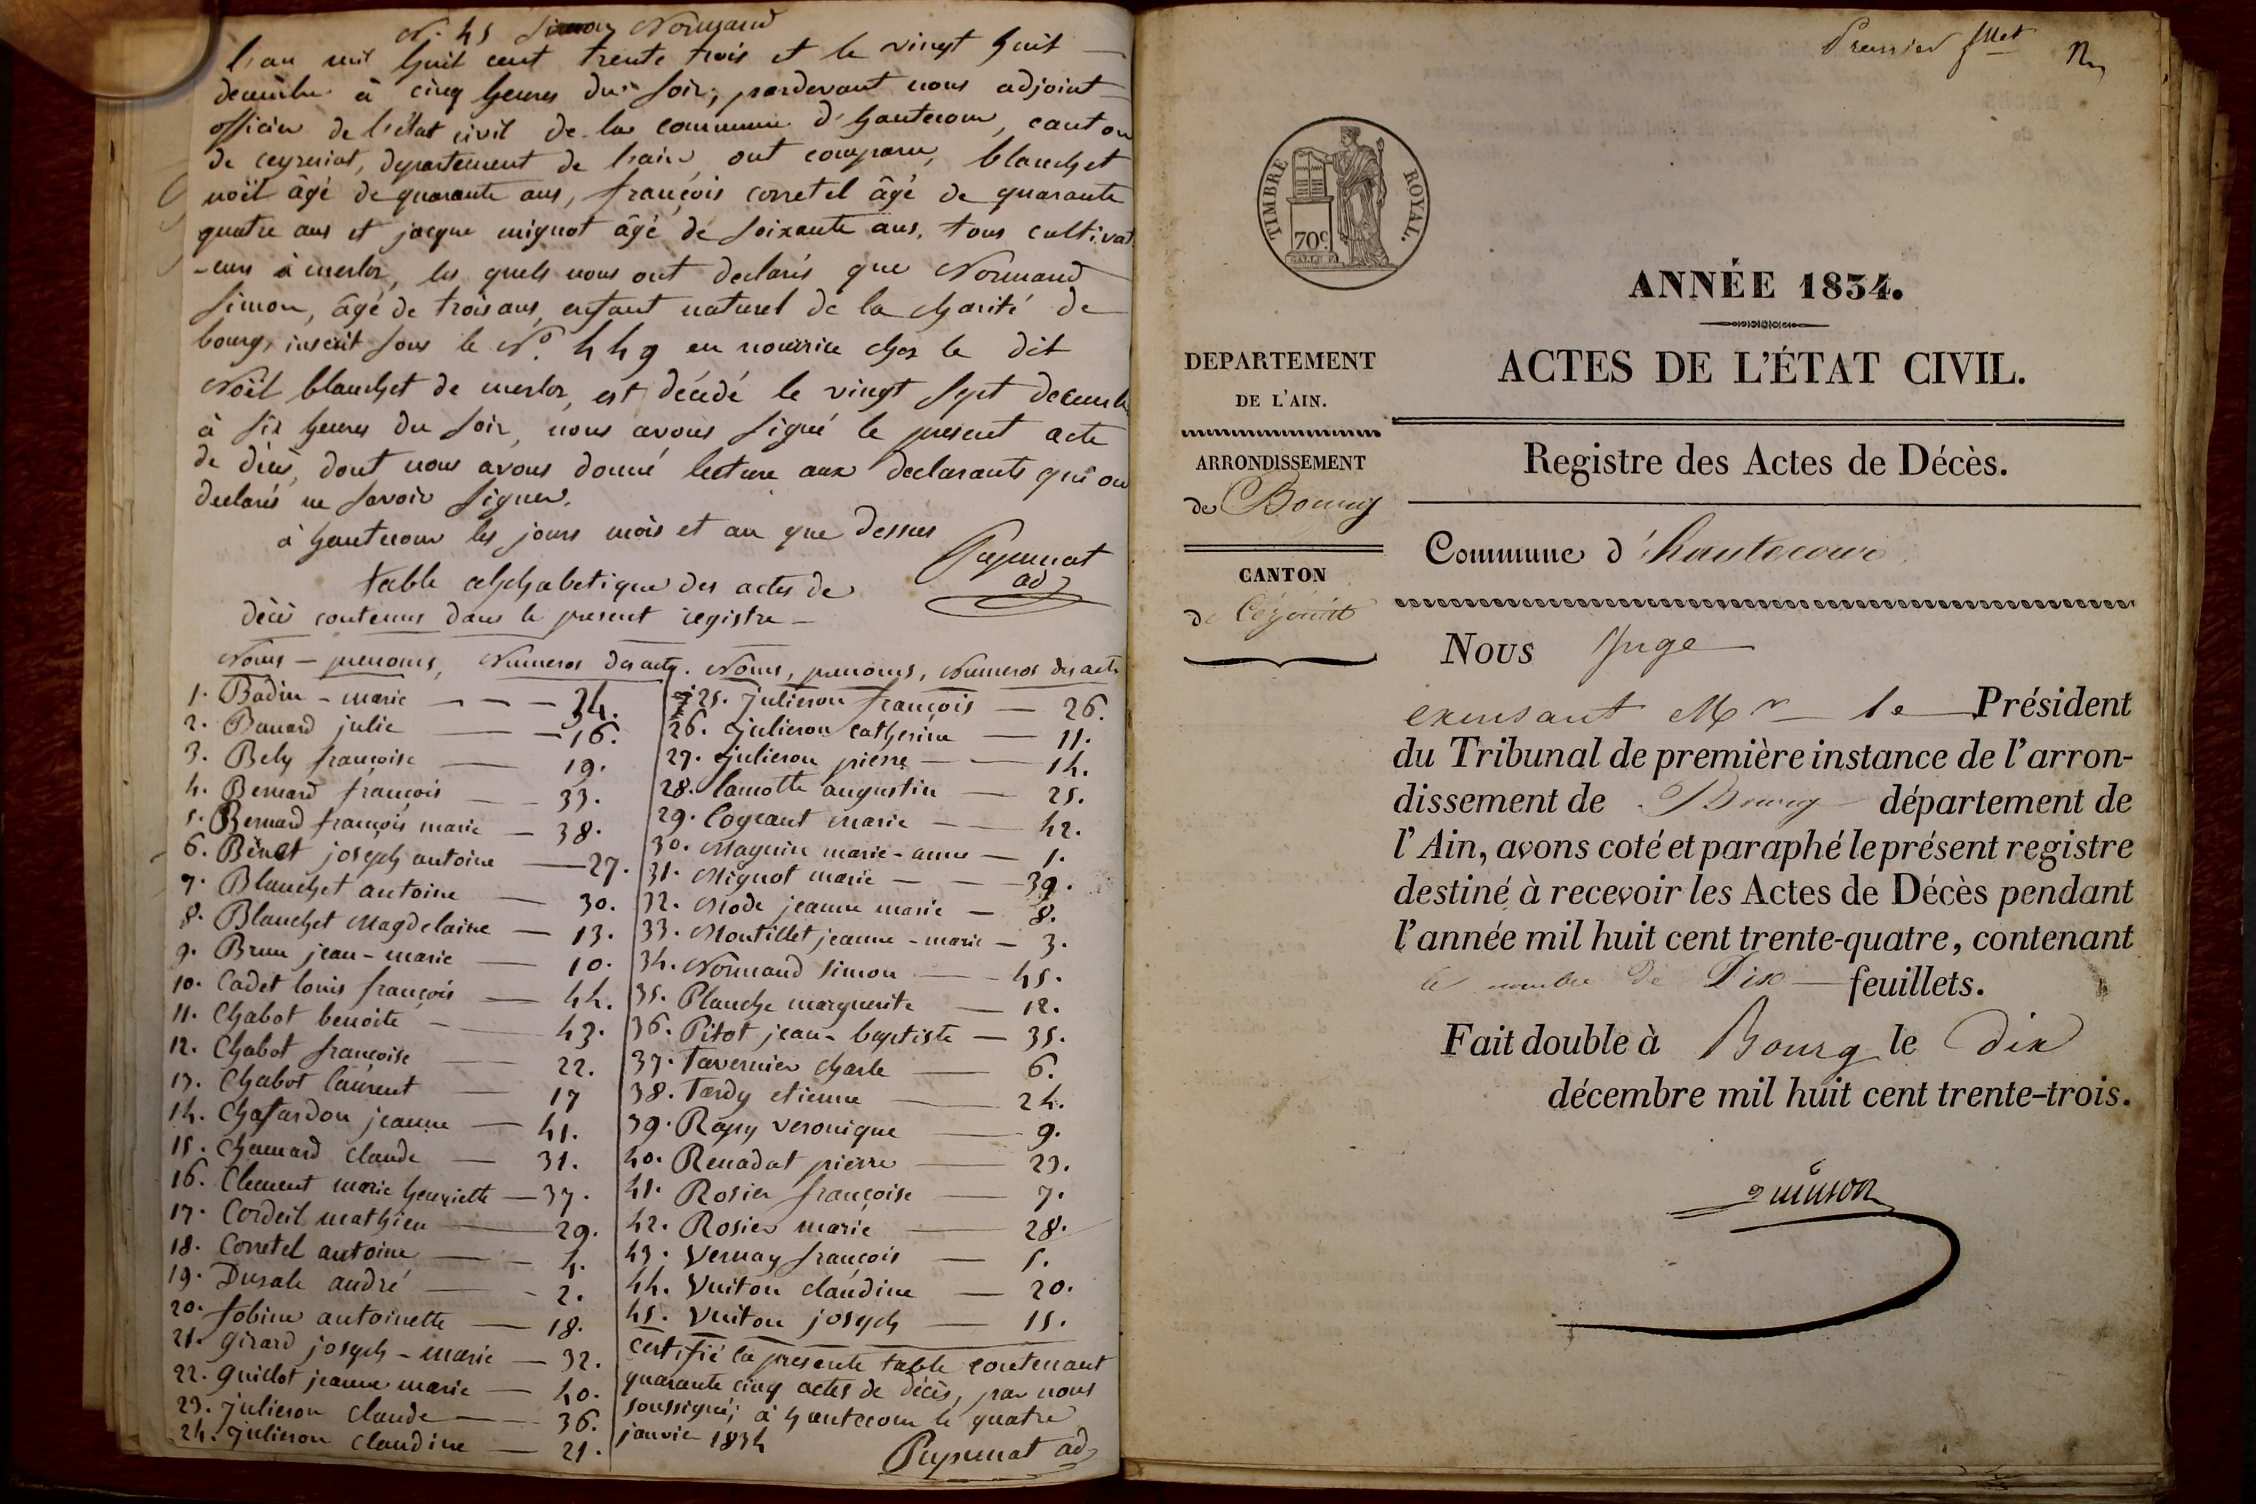 N. 45 Simon Normand
L'an mil huit cent trente trois et le vingt huit
decembre à cinq heures du soir, pardevant nous adjoint
officier de l'état civil de la commune d'hautecour, canton
de ceyzeriat, departement de l'ain ont comparu, blanchet
noël âgé de quarante ans, françois corretel âgé de quarante
quatre ans et jacque mignot âgé de soixante ans, tous cultivat
-eurs à merlor, les quels nous ont declarés que Normand
Simon, âgé de trois ans, enfant naturel de la charité de
bourg, inscrit sous le N°. 449 en nourrice chez le dit
Noël blanchet de merlor, est décédé le vingt sept decemb
à six heures du soir, nous avons signé le present acte
de décès, dont nous avons donné lecture aux declarants qui on
declarés ne savoir signer.
à hautecour les jours mois et an que dessus
Pupunat
adj
table alphabetique des actes de
décès contenus dans le present registre
Noms - prenoms, Numeros des actes.
1. Badin - marie - - - 34.
2. Banard julie - 16.
3. Bely françoise - 19.
4. Bernard françois - 33.
5. Bernard françois marie - 38.
6. Binet joseph antoine - 27.
7. Blanchet antoine - 30.
8. Blanchet Magdelaine - 13.
9. Brun jean-marie - 10.
10. Cadet louis françois - 44.
11. Chabot benoite - 43.
12. Chabot françoise - 22.
13. Chabot laurent - 17
14. Chafardon jeanne - 41.
15. Chanard claude - 31.
16. Clement marie henriette - 37.
17. Cordeil mathieu - 29.
18. Corretel antoine - 4.
19. Durale andré - 2.
20. fobine antoinette - 18.
21. girard joseph - marie - 32.
22. guillot jeanne marie - 40.
23. julieron claude - 36.
24. julieron claudine - 21.
Noms, prenoms, Numeros des acte
25. julieron françois - 26.
26. julieron catherine - 11.
27. julieron pierre - 14.
28. lamotte augustin - 25.
29. Logeant marie - 42.
30. Maguin marie-anne - 1.
31. Mignot marie - 39.
32. Mode jeanne marie - 8.
33. Montillet jeanne-marie - 3.
34. Normand simon - 45.
35. Planche marguerite - 12.
36. Pitot jean-baptiste - 35.
37. Tavernier charle - 6.
38. Tardy etienne - 24.
39. Rapy veronique - 9.
40. Renadat pierre - 23.
41. Rosier françoise - 7.
42. Rosier marie - 28.
43. Vernay françois - 5.
44. Vuiton claudine - 20.
45. Vuiton joseph - 15.
certifié la presente table contenant
quarante cinq actes de décès, par nous
soussigné; à hautecour le quatre
janvier 1834
Pupunat adj
Premier fllet
TIMBRE ROYAL.
70c
ANNÉE 1834.
ACTES DE L'ÉTAT CIVIL.
Registre des Actes de Décès.
DEPARTEMENT
DE L'AIN.
ARRONDISSEMENT
de Bourg
CANTON
de Cézériat
Commune d'hautecour
Nous Juge
exensant Mr le Président
du Tribunal de première instance de l'arron-
dissement de Bourg département de
l'Ain, avons coté et paraphé le présent registre
destiné à recevoir les Actes de Décès pendant
l'année mil huit cent trente-quatre, contenant
le nombre de Dix feuillets.
Fait double à Bourg le dix
décembre mil huit cent trente-trois.